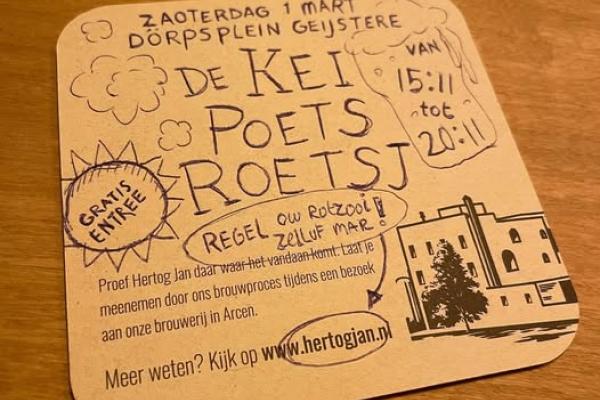 ZAOTERDAG 1 MART
DÖRPSPLEIN GEIJSTERE
VAN
15:11
tot
20:11
DE KEI
POETS
ROETSJ
GRATIS
ENTREE
REGEL OW ROTZOOI
ZELLUF MAR!
Proef Hertog Jan daar waar het vandaan komt. Laat je
meenemen door ons brouwproces tijdens een bezoek
aan onze brouwerij in Arcen.
Meer weten? Kijk op www.hertogjan.nl